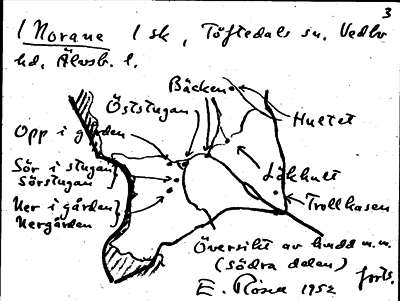 3
1 Norane 1 sk, Töftedals sn. Vedbo
hd. Älvsb. l.
Bäcken
Öststugan
Hultet
Opp i gården
Sör i stugan
Sörstugan
Lökhult
Ner i gården
Nergården
Trollhasen
Översikt av budd m.m.
(södra delen)
E. Rosen 1952
forts.